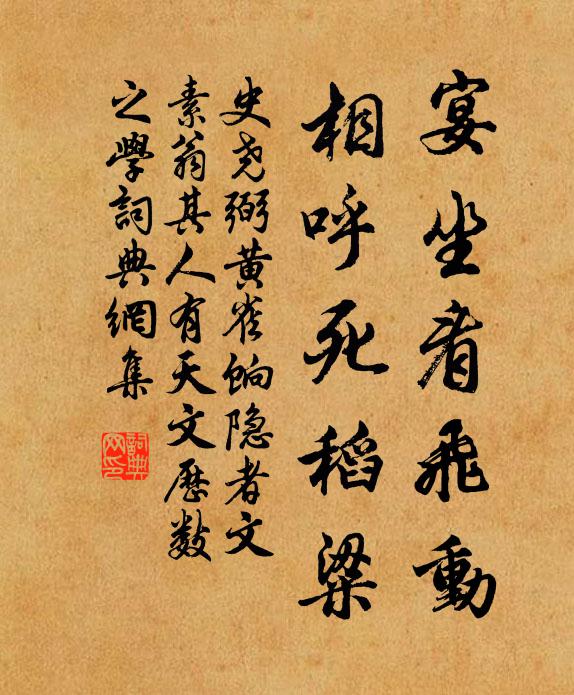 宴坐看飛動
相呼死稻粱
史尧弼黄雀餉隐者文
素翁其人有天文歷數
之學詞典網集
詞典網印